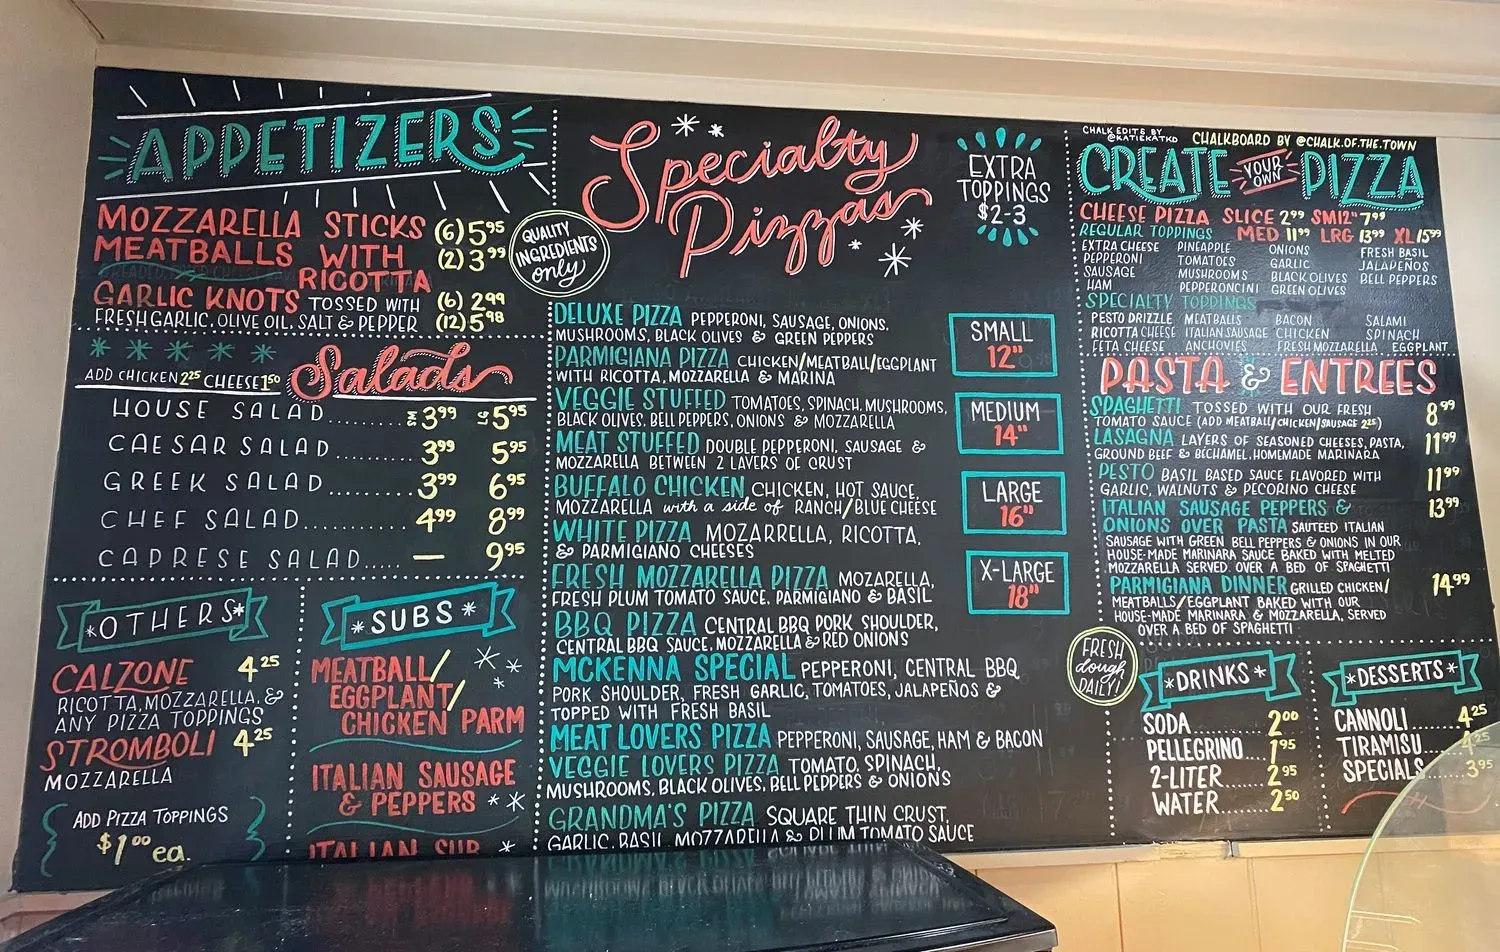 APPETIZERS
MOZZARELLA STICKS (6) 5.95
MEATBALLS WITH (2) 3.99
RICOTTA
GARLIC KNOTS TOSSED WITH (6) 2.99
FRESH GARLIC, OLIVE OIL, SALT & PEPPER (12) 5.98
QUALITY
INGREDIENTS
only
ADD CHICKEN 2.25 CHEESE 1.50
Salads
HOUSE SALAD 3.99 LG 5.95
CAESAR SALAD 3.99 5.95
GREEK SALAD 3.99 6.95
CHEF SALAD 4.99 8.99
CAPRESE SALAD — 9.95
*OTHERS*
CALZONE 4.25
RICOTTA, MOZZARELLA, &
ANY PIZZA TOPPINGS
STROMBOLI 4.25
MOZZARELLA
ADD PIZZA TOPPINGS
$1.00 ea.
*SUBS*
MEATBALL/
EGGPLANT/
CHICKEN PARM
ITALIAN SAUSAGE
& PEPPERS
ITALIAN SUB
Specialty
Pizzas
EXTRA
TOPPINGS
$2-3
DELUXE PIZZA PEPPERONI, SAUSAGE, ONIONS,
MUSHROOMS, BLACK OLIVES & GREEN PEPPERS
PARMIGIANA PIZZA CHICKEN/MEATBALL/EGGPLANT
WITH RICOTTA, MOZZARELLA & MARINA
VEGGIE STUFFED TOMATOES, SPINACH, MUSHROOMS,
BLACK OLIVES, BELL PEPPERS, ONIONS & MOZZARELLA
MEAT STUFFED DOUBLE PEPPERONI, SAUSAGE &
MOZZARELLA BETWEEN 2 LAYERS OF CRUST
BUFFALO CHICKEN CHICKEN, HOT SAUCE,
MOZZARELLA with a side of RANCH/BLUE CHEESE
WHITE PIZZA MOZARRELLA, RICOTTA,
& PARMIGIANO CHEESES
FRESH MOZZARELLA PIZZA MOZARELLA,
FRESH PLUM TOMATO SAUCE, PARMIGIANO & BASIL
BBQ PIZZA CENTRAL BBQ PORK SHOULDER,
CENTRAL BBQ SAUCE, MOZZARELLA & RED ONIONS
MCKENNA SPECIAL PEPPERONI, CENTRAL BBQ
PORK SHOULDER, FRESH GARLIC, TOMATOES, JALAPEÑOS &
TOPPED WITH FRESH BASIL
MEAT LOVERS PIZZA PEPPERONI, SAUSAGE, HAM & BACON
VEGGIE LOVERS PIZZA TOMATO, SPINACH,
MUSHROOMS, BLACK OLIVES, BELL PEPPERS & ONIONS
GRANDMA'S PIZZA SQUARE THIN CRUST,
GARLIC, BASIL, MOZZARELLA & PLUM TOMATO SAUCE
SMALL
12"
MEDIUM
14"
LARGE
16"
X-LARGE
18"
CHALK EDITS BY
@KATIEKATKD
CHALKBOARD BY @CHALK.OF.THE.TOWN
CREATE YOUR OWN PIZZA
CHEESE PIZZA SLICE 2.99 SM 12" 7.99
REGULAR TOPPINGS MED 11.99 LRG 13.99 XL 15.99
EXTRA CHEESE PINEAPPLE ONIONS FRESH BASIL
PEPPERONI TOMATOES GARLIC JALAPEÑOS
SAUSAGE MUSHROOMS BLACK OLIVES BELL PEPPERS
HAM PEPPERONCINI GREEN OLIVES
SPECIALTY TOPPINGS
PESTO DRIZZLE MEATBALLS BACON SALAMI
RICOTTA CHEESE ITALIAN SAUSAGE CHICKEN SPINACH
FETA CHEESE ANCHOVIES FRESH MOZZARELLA EGGPLANT
PASTA & ENTREES
SPAGHETTI TOSSED WITH OUR FRESH 8.99
TOMATO SAUCE (ADD MEATBALL/CHICKEN/SAUSAGE 2.25)
LASAGNA LAYERS OF SEASONED CHEESES, PASTA, 11.99
GROUND BEEF & BECHAMEL, HOMEMADE MARINARA
PESTO BASIL BASED SAUCE FLAVORED WITH 11.99
GARLIC, WALNUTS & PECORINO CHEESE
ITALIAN SAUSAGE PEPPERS & 13.99
ONIONS OVER PASTA SAUTEED ITALIAN
SAUSAGE WITH GREEN BELL PEPPERS & ONIONS IN OUR
HOUSE-MADE MARINARA SAUCE BAKED WITH MELTED
MOZZARELLA SERVED OVER A BED OF SPAGHETTI
PARMIGIANA DINNER GRILLED CHICKEN/ 14.99
MEATBALLS/EGGPLANT BAKED WITH OUR
HOUSE-MADE MARINARA & MOZZARELLA, SERVED
OVER A BED OF SPAGHETTI
FRESH
dough
DAILY!
*DRINKS*
SODA 2.00
PELLEGRINO 1.95
2-LITER 2.95
WATER 2.50
*DESSERTS*
CANNOLI 4.25
TIRAMISU 4.25
SPECIALS 3.95